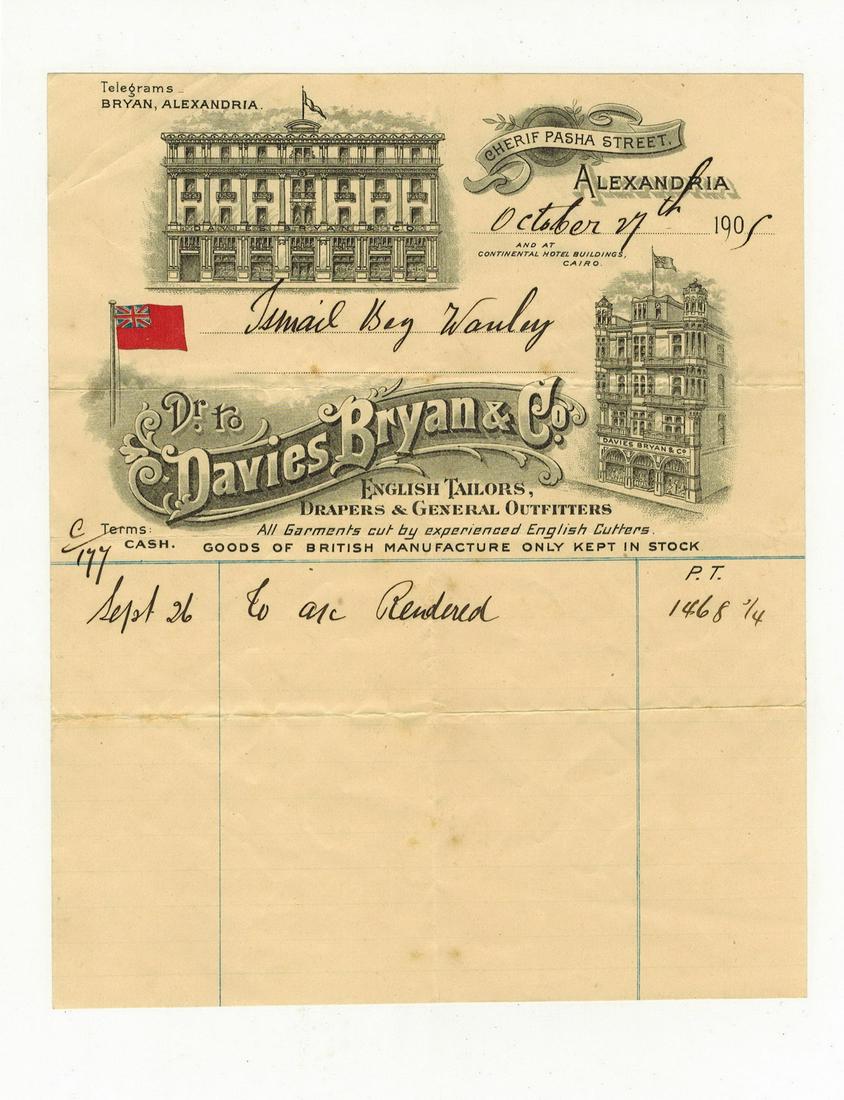 Telegrams
BRYAN, ALEXANDRIA.
CHERIF PASHA STREET.
ALEXANDRIA
October 27th 1905
AND AT
CONTINENTAL HOTEL BUILDINGS,
CAIRO.
DAVIES BRYAN & CO
Ismail Bey
Dr. to
Davies Bryan & Co.
DAVIES BRYAN & Co
ENGLISH TAILORS,
DRAPERS & GENERAL OUTFITTERS
C/177
Terms:
CASH.
All Garments cut by experienced English Cutters.
GOODS OF BRITISH MANUFACTURE ONLY KEPT IN STOCK
P.T.
Sept 26 To a/c Rendered 1468